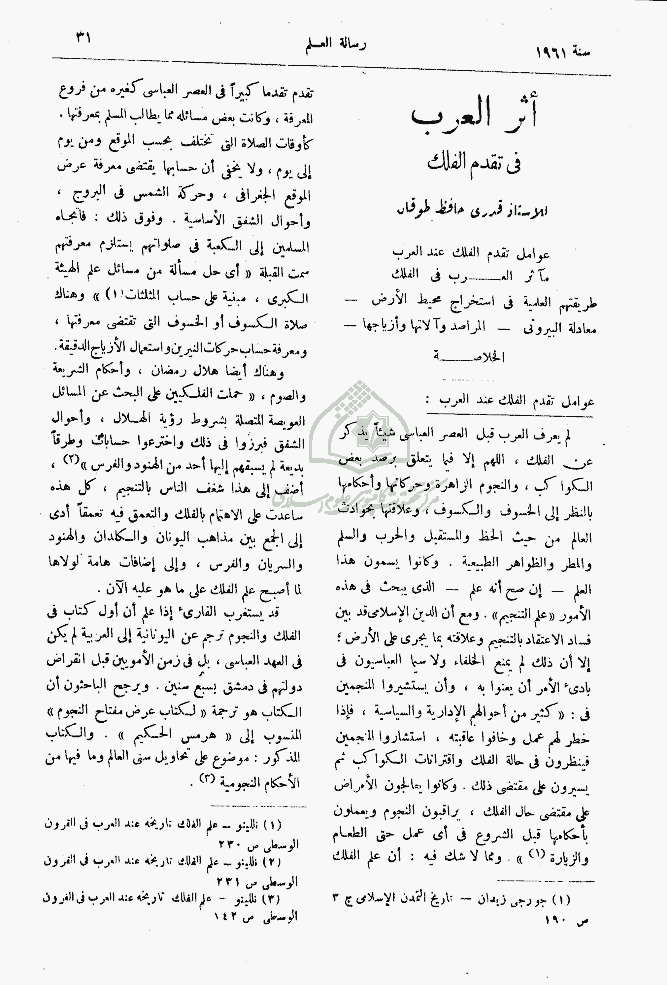 سنة ١٩٦١
رسالة العلم
٣١
أثر العرب
فى تقدم الفلك
للأستاذ قدرى حافظ طوقان
عوامل تقدم الفلك عند العرب
مآثر العـــرب فى الفلك
طريقتهم العلمية فى استخراج محيط الأرض —
معادلة البيرونى — المراصد وآلاتها وأزياجها —
الخلاصـــة
عوامل تقدم الفلك عند العرب :
لم يعرف العرب قبل العصر العباسى شيئاً يذكر
عن الفلك ، اللهم إلا فيما يتعلق برصد بعض
الكواكب ، والنجوم الزاهرة وحركاتها وأحكامها
بالنظر إلى الخسوف والكسوف ، وعلاقتها بحوادث
العالم من حيث الحظ والمستقبل والحرب والسلم
والمطر والظواهر الطبيعية . وكانوا يسمون هذا
العلم — إن صح أنه علم — الذى يبحث فى هذه
الأمور «علم التنجيم» . ومع أن الدين الإسلامى قد بين
فساد الاعتقاد بالتنجيم وعلاقته بما يجرى على الأرض ؛
إلا أن ذلك لم يمنع الخلفاء ولا سيما العباسيون فى
بادىء الأمر أن يعنوا به ، وأن يستشيروا المنجمين
فى : «كثير من أحوالهم الإدارية والسياسية ، فإذا
خطر لهم عمل وخافوا عاقبته ، استشاروا المنجمين
فينظرون فى حالة الفلك واقترانات الكواكب ثم
يسيرون على مقتضى ذلك . وكانوا يعالجون الأمراض
على مقتضى حال الفلك ، يراقبون النجوم ويعملون
بأحكامها قبل الشروع فى أى عمل حتى الطعام
والزيارة (١) » . ومما لا شك فيه : أن علم الفلك
(١) جورجى زيدان — تاريخ التمدن الإسلامى ج ٣
ص ١٩٠
تقدم تقدما كبيراً فى العصر العباسى كغيره من فروع
المعرفة ، وكانت بعض مسائله مما يطالب المسلم بمعرفتها .
كأوقات الصلاة التى تختلف بحسب الموقع ومن يوم
إلى يوم ، ولا يخفى أن حسابها يقتضى معرفة عرض
الموقع الجغرافى ، وحركة الشمس فى البروج ،
وأحوال الشفق الأساسية . وفوق ذلك : فاتجاه
المسلمين إلى الكعبة فى صلواتهم يستلزم معرفتهم
سمت القبلة « أى حل مسألة من مسائل علم الهيئة
الكبرى ، مبنية على حساب المثلثات(١) » وهناك
صلاة الكسوف أو الخسوف التى تقتضى معرفتها ،
ومعرفة حساب حركات النيرين واستعمال الأزياج الدقيقة.
وهناك أيضا هلال رمضان ، وأحكام الشريعة
والصوم ، « حملت الفلكيين على البحث عن المسائل
العويصة المتصلة بشروط رؤية الهلال ، وأحوال
الشفق فبرزوا فى ذلك واخترعوا حسابات وطرقاً
بديعة لم يسبقهم إليها أحد من الهنود والفرس » (٢) ،
أضف إلى هذا شغف الناس بالتنجيم ، كل هذه
ساعدت على الاهتمام بالفلك والتعمق فيه تعمقاً أدى
إلى الجمع بين مذاهب اليونان والكلدان والهنود
والسريان والفرس ، وإلى إضافات هامة لولاها
لما أصبح علم الفلك على ما هو عليه الآن .
قد يستغرب القارىء إذا علم أن أول كتاب فى
الفلك والنجوم ترجم عن اليونانية إلى العربية لم يكن
فى العهد العباسى ، بل فى زمن الأمويين قبل انقراض
دولتهم فى دمشق بسبع سنين . ويرجح الباحثون أن
الكتاب هو ترجمة « لكتاب عرض مفتاح النجوم »
المنسوب إلى « هرمس الحكيم » . والكتاب
المذكور : موضوع على تحاويل سنى العالم وما فيها من
الأحكام النجومية (٣) .
(١) نللينو — علم الفلك تاريخه عند العرب فى القرون
الوسطى ص ٢٣٠
(٢) نللينو — علم الفلك تاريخه عند العرب فى القرون
الوسطى ص ٢٣١
(٣) نللينو — علم الفلك تاريخه عند العرب فى القرون
الوسطى ص ١٤٢